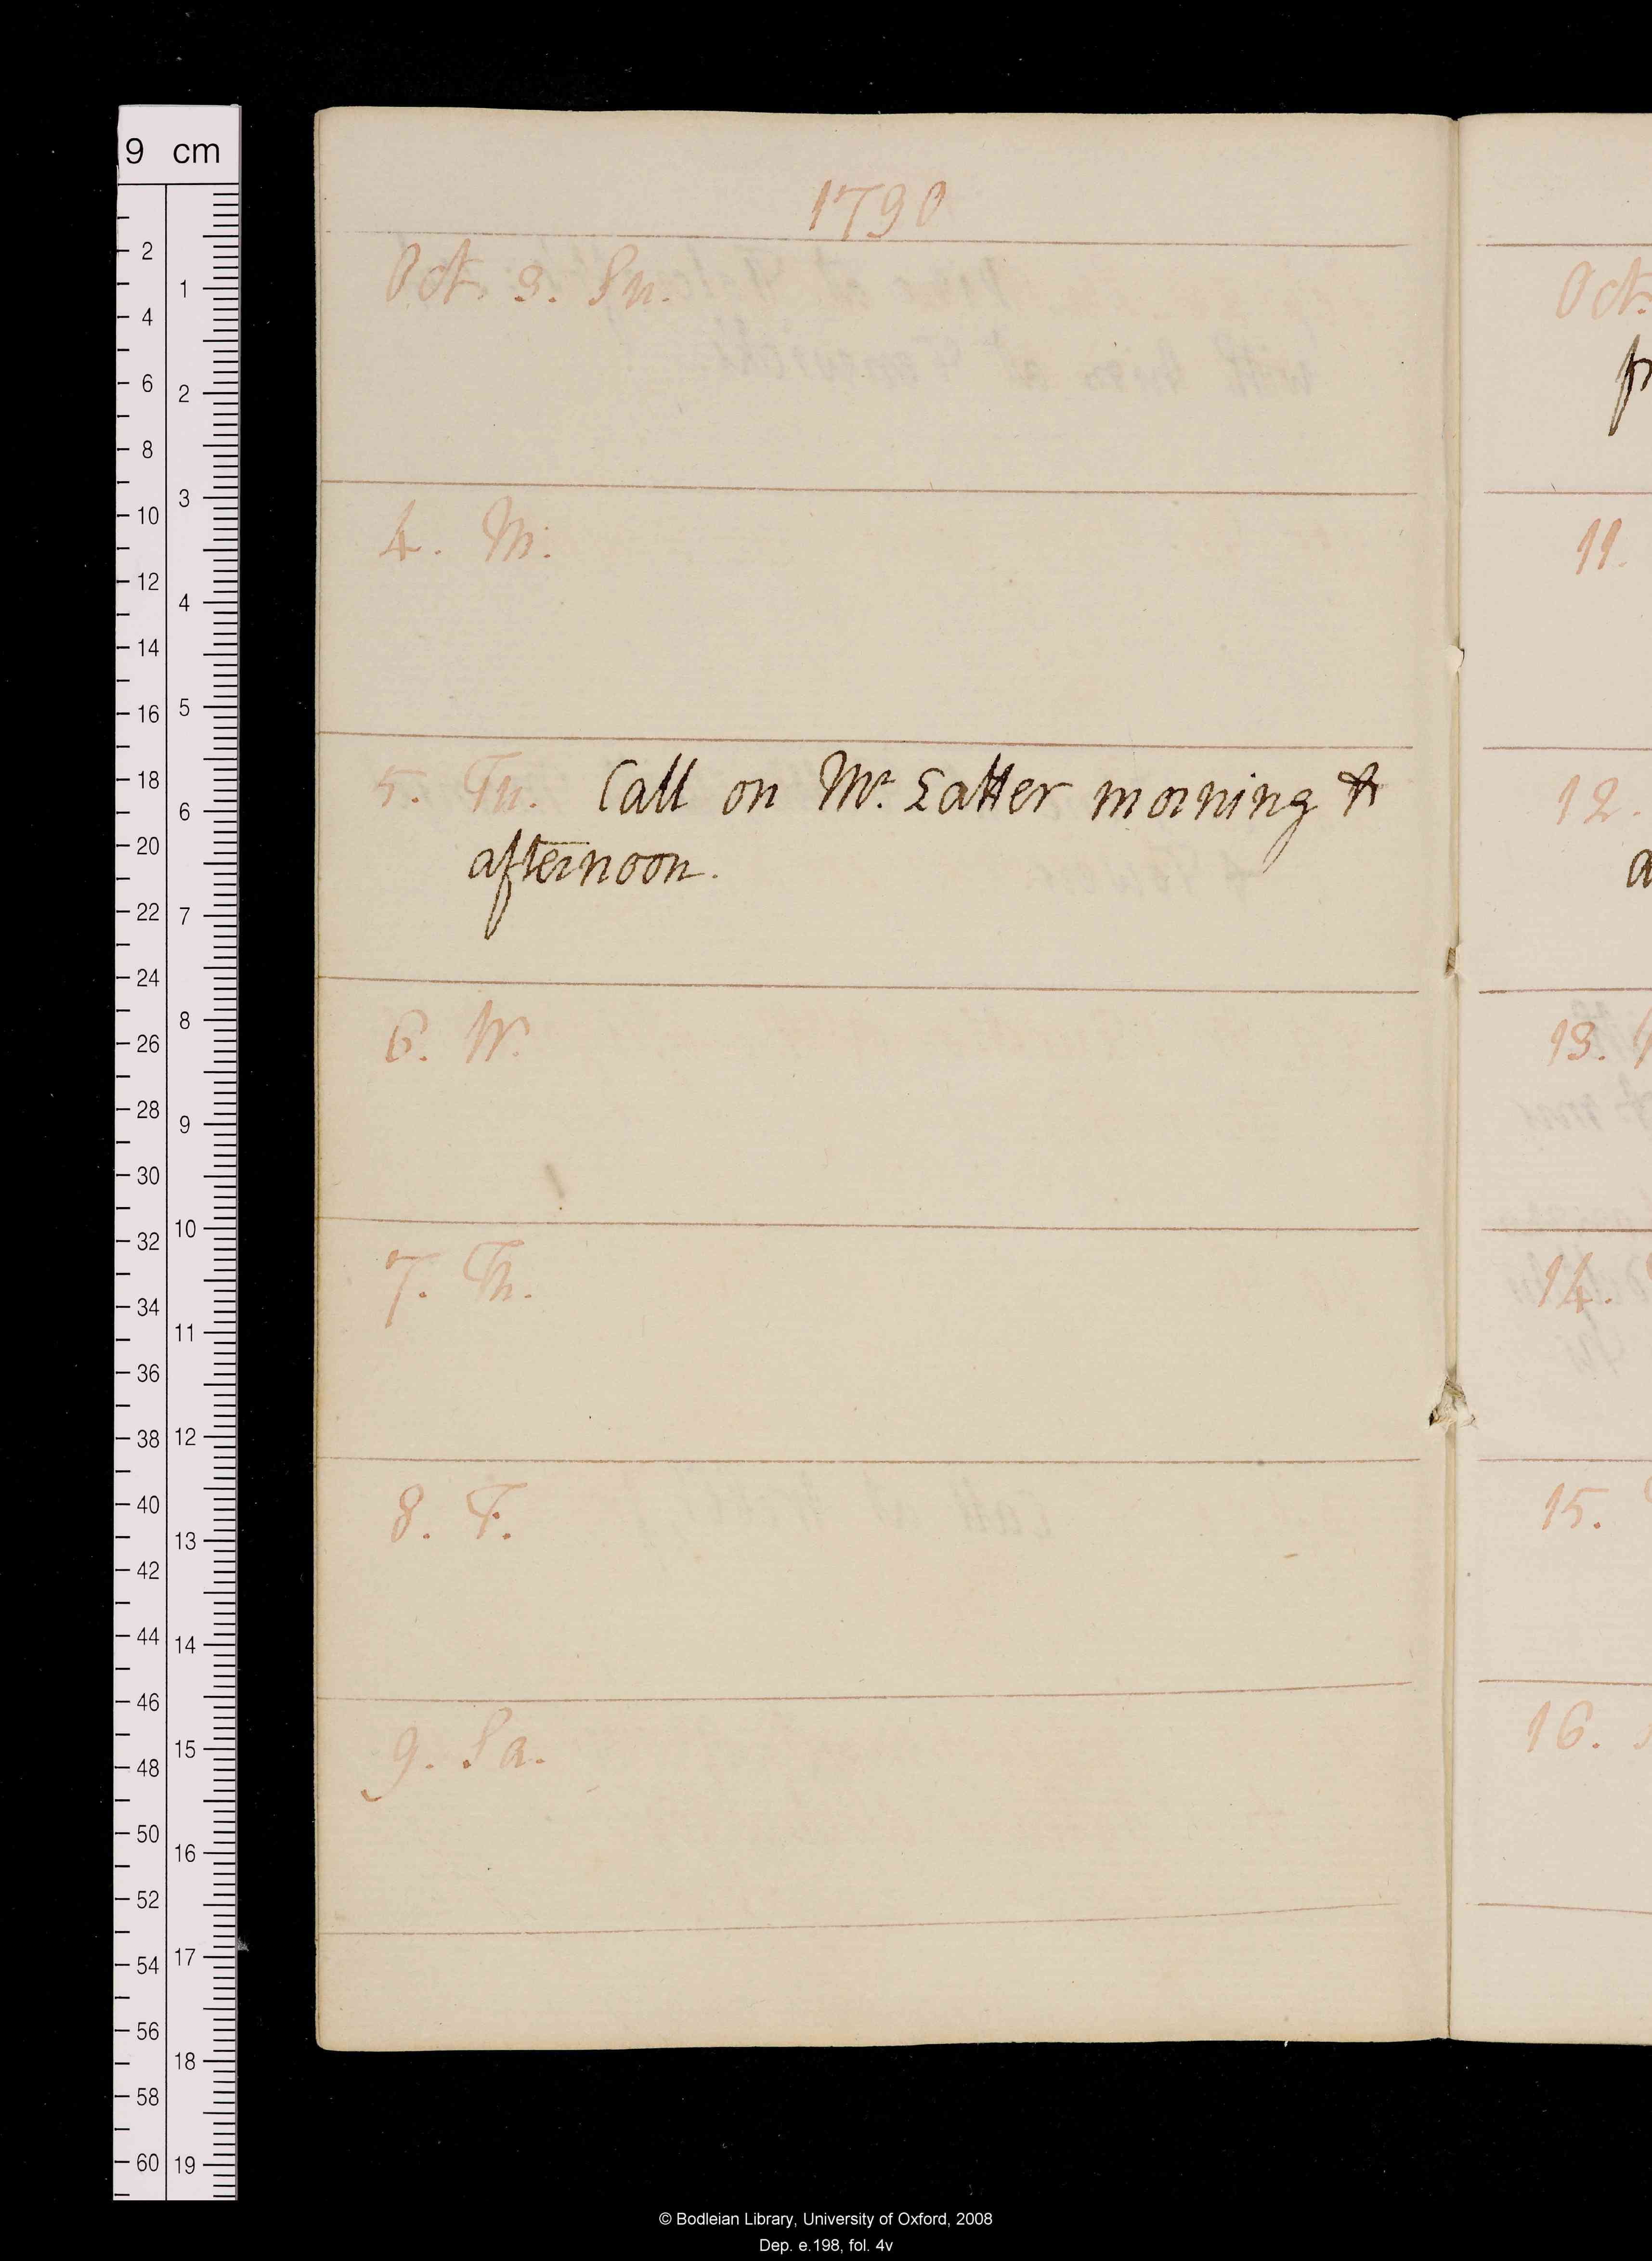 1790
Oct. 3. Su.
4. M.
5. Tu. Call on Mr. Latter morning &
afternoon.
6. W.
7. Th.
8. F.
9. Sa.
Oct.
11.
12.
a
13.
14.
15.
16.
9 cm
2
4
6
8
10
12
14
16
18
20
22
24
26
28
30
32
34
36
38
40
42
44
46
48
50
52
54
56
58
60
1
2
3
4
5
6
7
8
9
10
11
12
13
14
15
16
17
18
19
© Bodleian Library, University of Oxford, 2008
Dep. e.198, fol. 4v